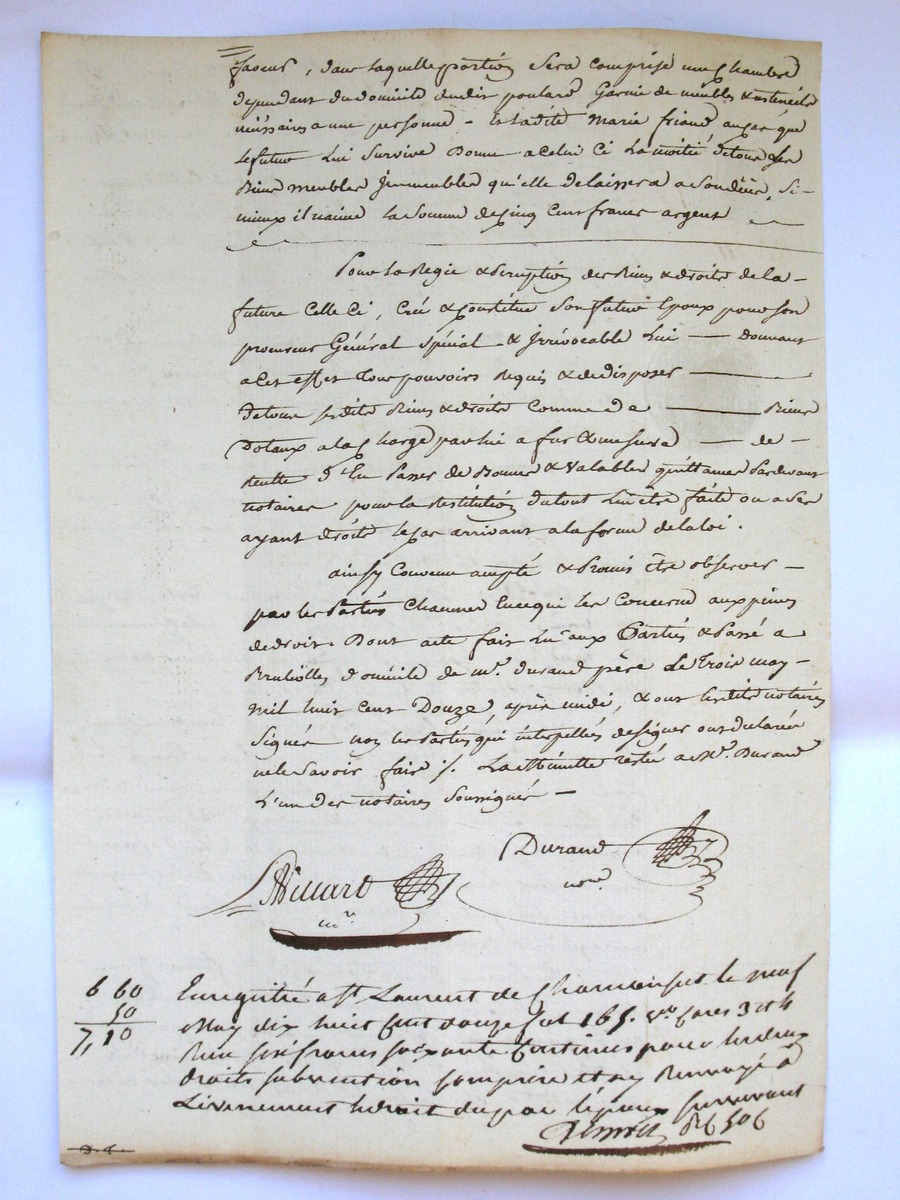 faveur, dans laquelle portion sera comprise une chambre
dependant du domicile dudit poulard Garnie de meubles & ustenciles
nécéssaires a une personne - et ladite Marie friand au cas que
le futur lui survive Donne a celui ci la moitié de tous ses
Biens meubles jmmeubles qu'elle delaissera a son décès, si-
mieux il n'aime la somme de cinq cent francs argent
Pour la Regie & perception des Biens & droits de la -
future celle ci, Créé & constitue son futur Epoux pour son
procureur Général spécial & jrrévocable lui — donnant
a cet effet tous pouvoirs Requis & de disposer —
de tous sesdits Biens & droits comme de — Biens
Dotaux a la charge par lui a fur & mesure — de -
Recette d'En Passer de Bonnes & valables quittances Pardevant
notaires pour la Restitution du tout lui être faite ou a ses
ayant droits le cas arrivant a la forme de la loi.
ainsy Convenu accepté & Promis être observer -
par les Parties chacunes En ce qui les Concerne aux peines
de droit. Dont acte fait lu aux Parties & Passé a
Brulliolles domicile de Mr. durand père le Trois may -
mil huit cent Douze, après midi, & ont lesdits notaires
signés non les Parties qui interpellées de signer ont déclarée
ne le savoir faire ./. La Minutte restée a Mr. Durand
L'un des notaires soussignés -
Durand
nore.
nre
6 60
50
7,10
Enregistré a St. Laurent de Chamousset le neuf
May dix huit cent douze fol 165. vo. cases 3 et 4
Reçu six francs soixante centimes pour les deux
droits subvention comprise et ay Renvoyé à
L'évènement le droit du par l'époux survivant